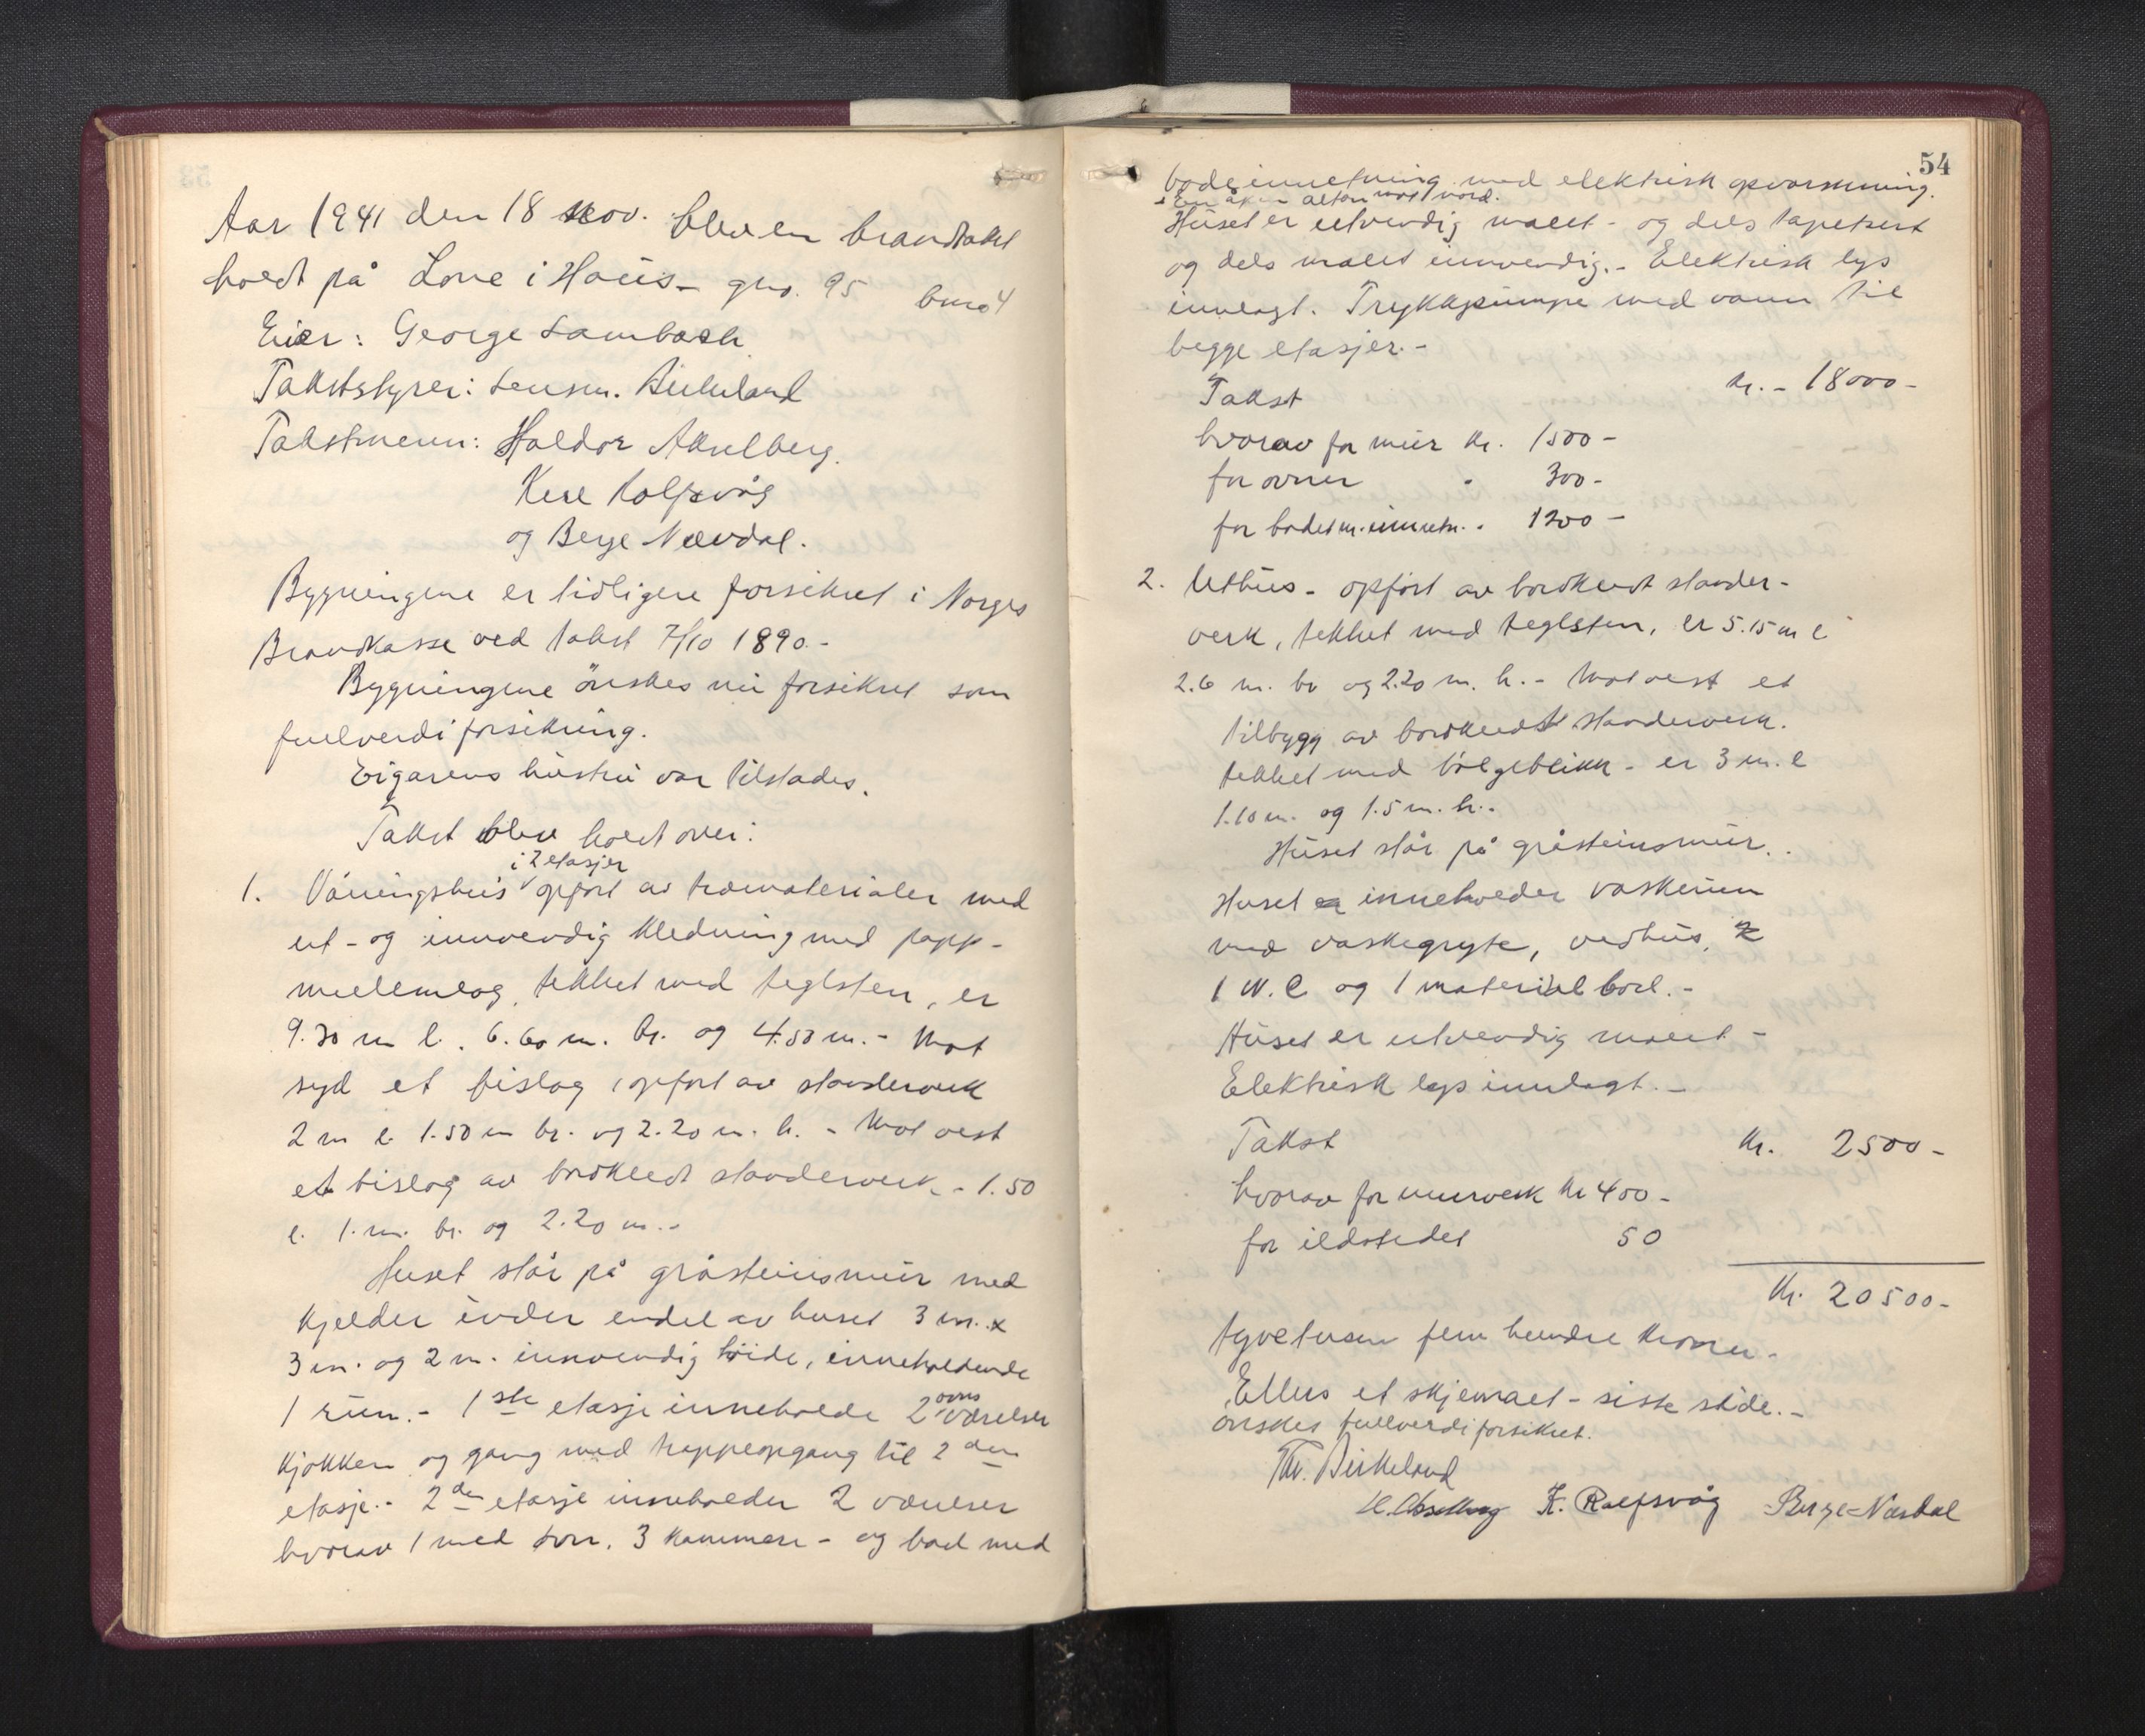 Aar 1941 den 18 nov. blev en brandtakst
holdt på Lone i Haus - gno. 95 bno 4
Eier: George Lambach
Takststyrer: Lensm. Birkeland
Takstmenn: Haldor Akselberg.
Rolfsvåg
og Berge Nævdal.
Bygningene er tidligere forsikret i Norges
Brandkasse ved takst 7/10 1890.-
Bygningene önskes nu forsikret som
fullverdiforsikring.
Eigarens hustru var tilstades.
Takst blev holdt over:
i 2 etasjer
1. Våningshus opfört av træmaterialer med
ut- og innvendig kledning med papp-
mellemlag, tekket med teglsten, er
9.30 m l. 6.60 m. br. og 4.50 m. - Mot
syd et bislag opfört av stenderverk
2 m l. 1.50 m br. og 2.20 m. h. - Mot vest
et bislag av bordkledt stenderverk - 1.50
l. 1. m. br. og 2.20 m. -
Huset står på gråsteinsmur med
kjelder under endel av huset 3 m. x
3 m. og 2 m. innvendig höide, inneholdende
1 rum. - 1ste etasje inneholde 2 ovns værelser
kjökken og gang med trappeopgang til 2den
etasje. - 2den etasje inneholder 2 værelser
hvorav 1 med ovn. 3 kammers - og bad med
54
badeinnretning med elektrisk opvarmning.
En åpen altan mot nord.
Huset er utvendig malt - og dels tapetsert
og dels malet innvendig. - Elektrisk lys
innlagt. Trykkpumpe med vann til
begge etasjer. -
Takst kr. - 18000 -
hvorav for mur kr. 1500 -
for ovner " 300 -
for badeværm.innretn. " 1200 -
2. Uthus - opfört av bordkledt stender-
verk, tekket med teglsten, er 5.15 m l
2.6 m. br og 2.20 m. h. - Mot vest et
tilbygg av bordkledt stenderverk.
tekket med bölgeblikk - er 3 m. l
1.10 m. og 1.5 m. h. -
Huset står på gråsteinsmur.
Huset inneholder vaskerum
med vaskegryte, vedhus,
1 W.C og 1 materialbod. -
Huset er utvendig malt -
Elektrisk lys innlagt. -
Takst kr. 2500 -
hvorav for murverk kr 400 -
for ildstedet 50
Kr. 20500 -
tyvetusen fem hundre kroner -
Ellers et skjemaet - siste side. -
önskes fullverdiforsikret.
Th. Birkeland
H. Akselberg K. Rolfsvåg Berge Nævdal